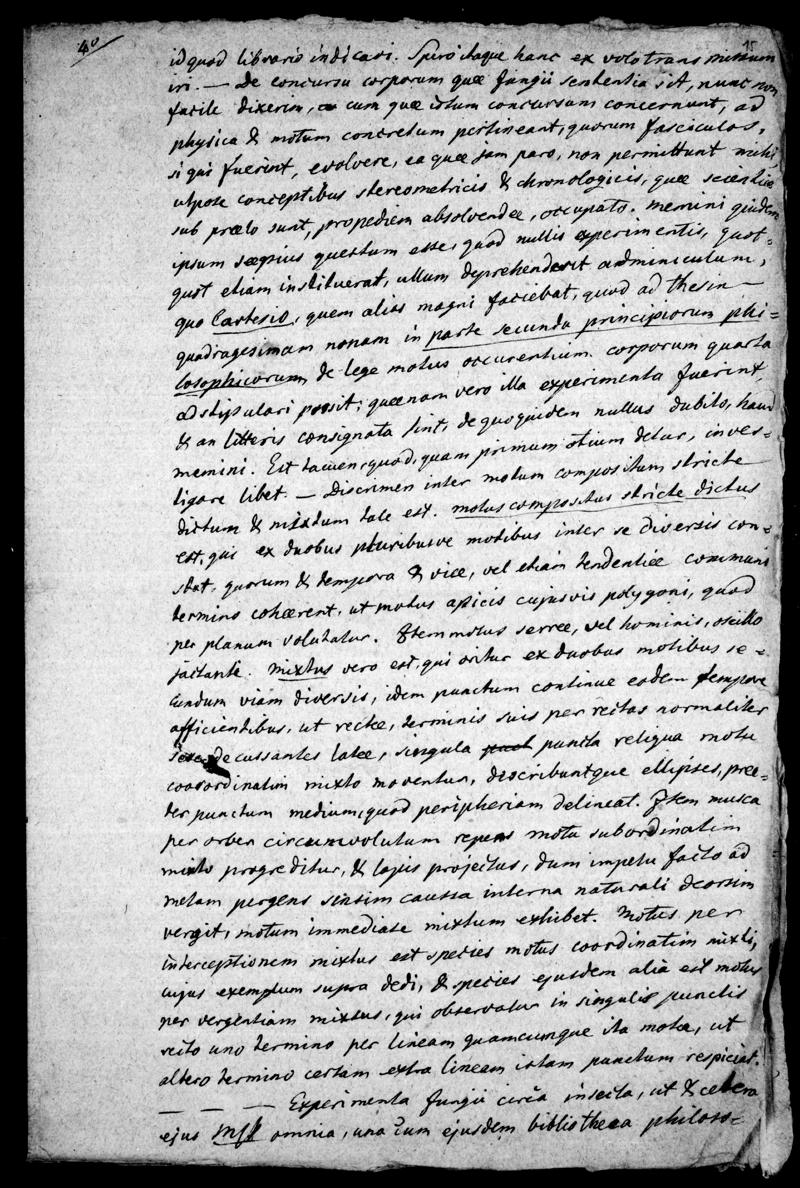 40
15
id quod librario indicavi. Spero itaque hanc ex voto transmissum
iri. — De concursu corporum quæ Jungii sententia sit, nunc non
facile dixerim, cum quæ istum concursum concernunt, ad
physica & motum concretum pertineant, quorum fasciculos,
si qui fuerint, evolvere, ea quæ jam paro, non permittunt mihi,
utpote conceptibus stereometricis & chronologicis, quæ
sub prælo sunt, propediem absolvendæ, occupato. Memini quidem
ipsum sæpius questum esse, quod nullis experimentis, quot-
quot etiam instituerat, ullum deprehenderit adminiculum,
quo Cartesio, quem alias magni faciebat, quod ad thesin
quadragesimam nonam in parte secunda principiorum phi-
losophicorum de lege motus occurentium corporum quarta
adstipulari possit; quænam vero illa experimenta fuerint,
& an litteris consignata sint, de quo quidem nullus dubito, haud
memini. Est tamen, quod, quam primum otium detur, inves-
tigare libet. — Discrimen inter motum compositum stricte
dictum & mixtum tale est. motus compositus stricte dictus
est, qui ex duobus pluribusve motibus inter se diversis con-
stat, quorum & tempora & viæ, vel etiam tendentiæ communi
termino cohærent, ut motus apicis cujusvis polygoni, quod
per planum volutatur. Item motus serræ, vel hominis, oscillo
jactante. Mixtus vero est, qui oritur ex duobus motibus se-
cundum viam diversis, idem punctum continue eodem tempore
afficientibus, ut rectæ, terminis suis per rectas normaliter
sese decussantes latæ, singula punct puncta reliqua motu
coordinatim mixto moventur, describuntque ellipses, præ-
ter punctum medium, quod peripheriam delineat. Item musca
per orbem circumvolutum repens motu subordinatim
mixto progreditur, & lapis projectus, dum impetu facto ad
metam pergens sensim caussa interna naturali deorsim
vergit, motum immediate mixtum exhibet. Motus per
interceptionem mixtus est species motus coordinatim mixti,
cujus exemplum supra dedi, & species ejusdem alia est motus
per vergentiam mixtus, qui observatur in singulis punctis
recto uno termino per lineam quamcunque ita motæ, ut
altero termino certam extra lineam istam punctum respiciat.
— — — Experimenta Jungii circa insecta, ut & cetera
ejus Mss omnia, una cum ejusdem bibliotheca philoso-